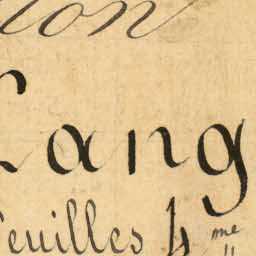 ion
Lang
feuilles 4 me